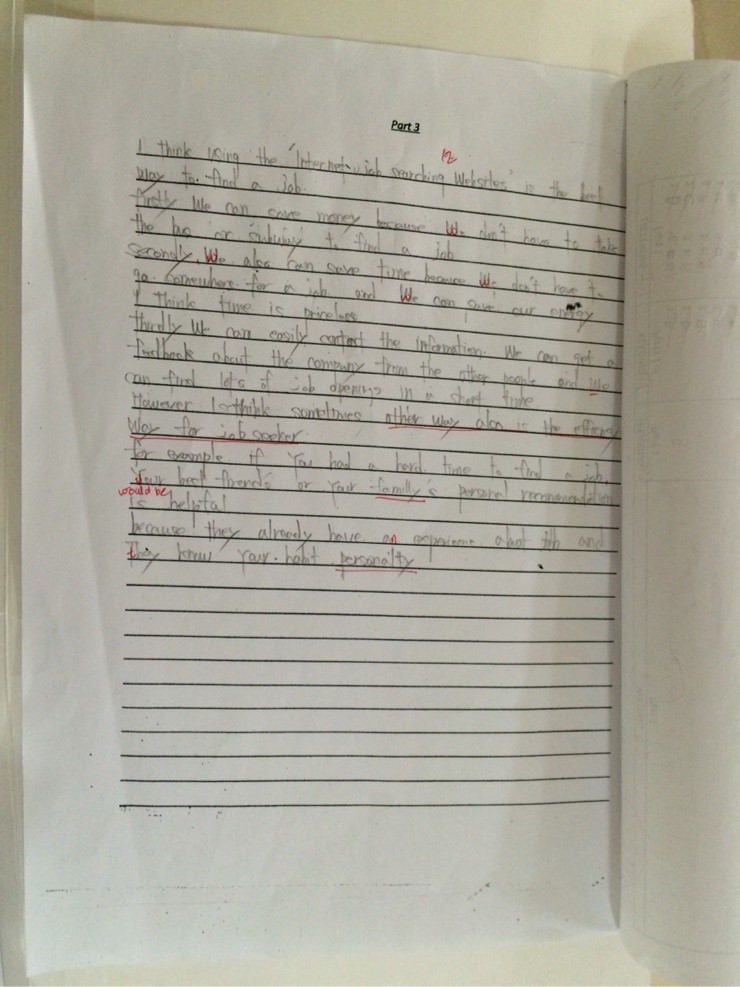 Part 3
12
I think using the 'Internet job searching websites' is the best
way to find a job.
firstly We can save money because We don't have to take
the bus or subway to find a job
secondly, We also can save time because We don't have to
go somewhere for a job and We can save our energy
I think time is priceless
thirdly We can easily the information. We can get a
feedback about the company from the other people and We
can find lots of job openings in a short time
However I think sometimes other way also is the
way for job seeker.
for example if You had a hard time to find a job,
Your best friend's or your familly's personal recommendation
would be
is helpful
because they already have an experience about job and
They know your habit personalty